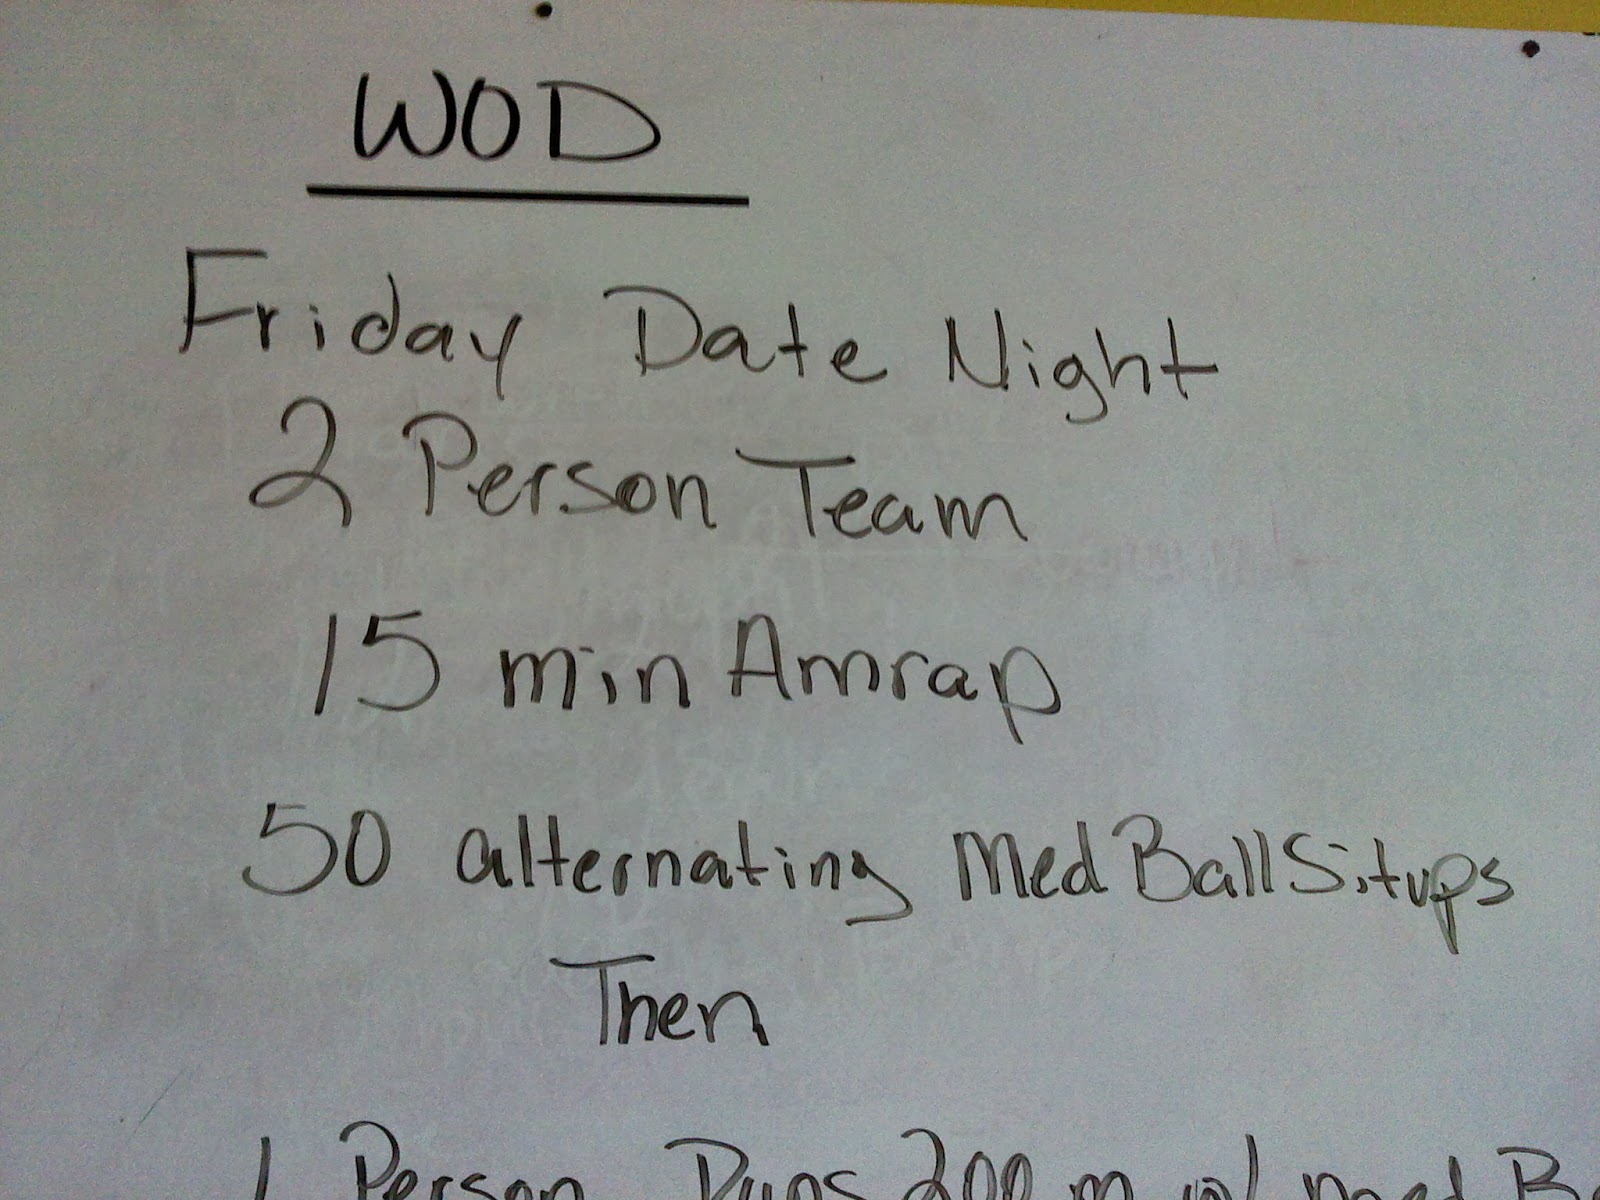 WOD
Friday Date Night
2 Person Team
15 min Amrap
50 alternating Med Ball Situps
Then
1 Person Runs 200 m w/ med